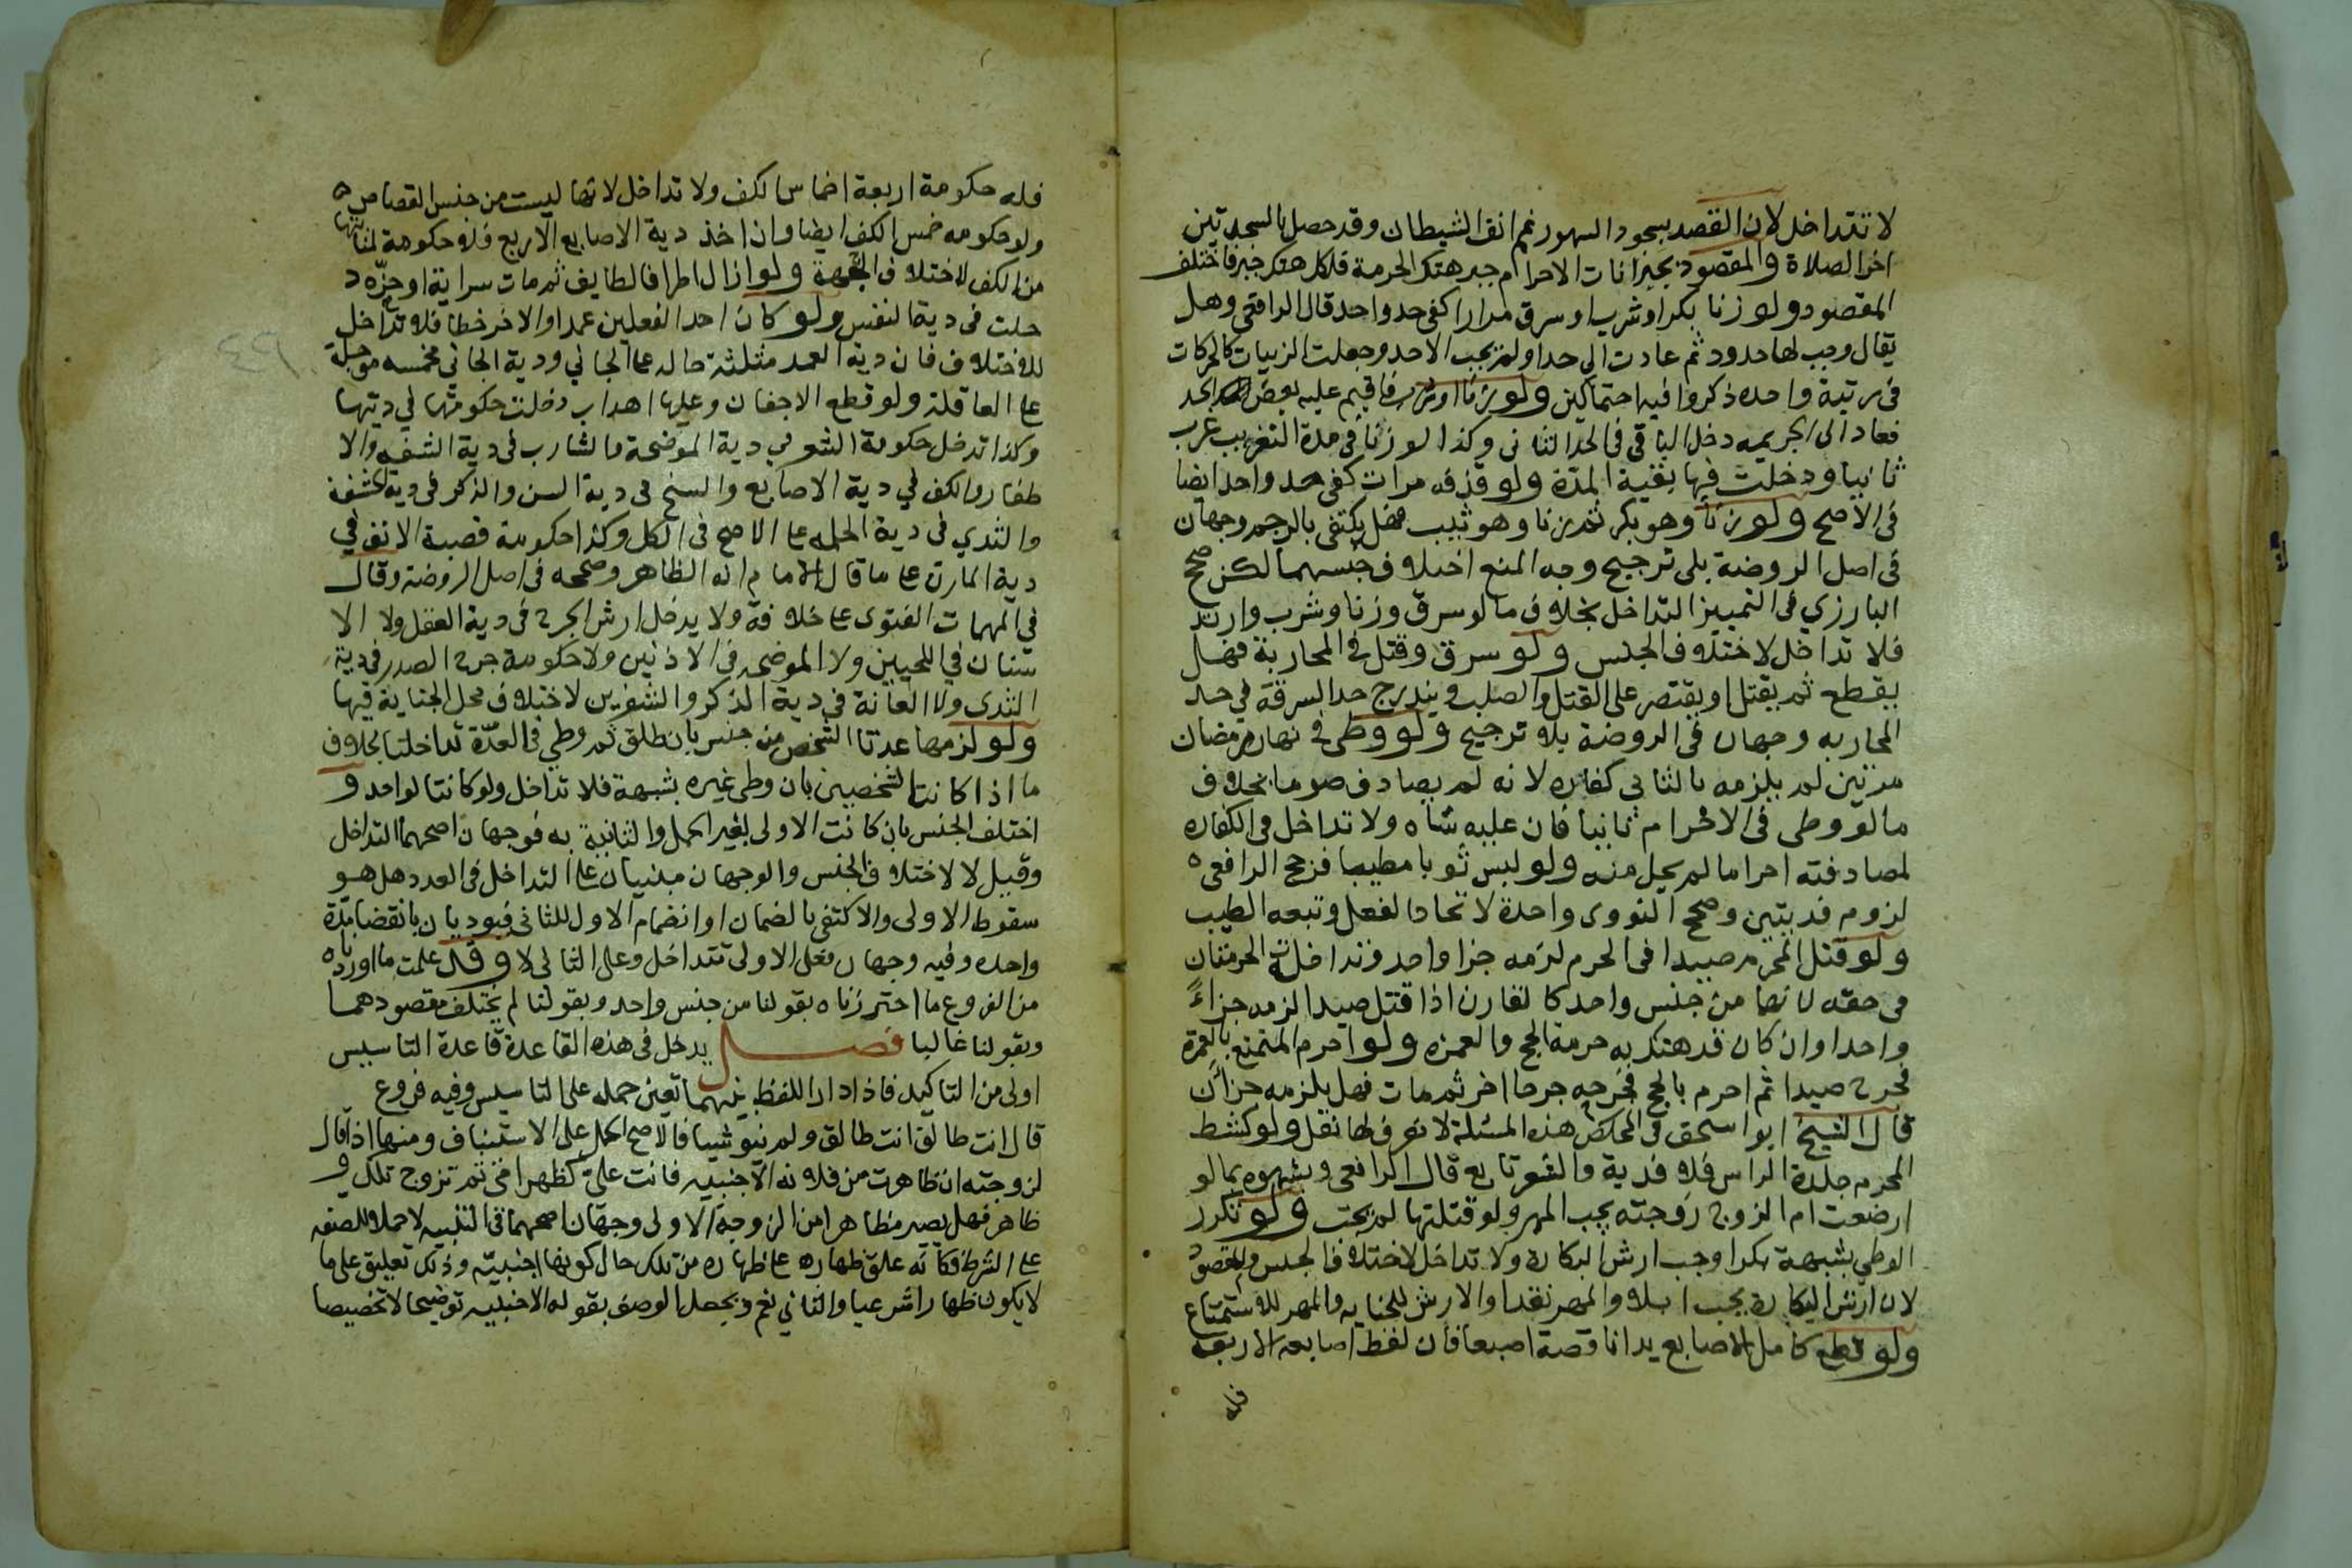 لا تتداخل لان القصد بسجود السهو رغم انف الشيطان وقد حصل بالسجدتين
اخر الصلاة والمقصود بجبرانات الاحرام جبر هتك الحرمة فلكل هتك جبر فاختلف
المقصود ولو زنا بكرا وشرب او سرق مرارا كفى حد واحد قال الرافعي وهل
يقال وجب لها حدود ثم عادت الى حد او لم يجب الا حد وجعلت الزنيات كالحركات
في زنية واحده ذكروا فيه احتمالين ولو زنا او شرب فاقيم عليه بعض الحد
فعاد الى الجريمه دخل الباقي في الحد الثاني وكذا لو زنا في مدة التغريب غرب
ثانيا ودخلت فيها بقية المدة ولو قذفه مرات كفى حد واحد ايضا
في الاصح ولو زنا وهو بكر ثم زنا وهو ثيب فهل يكتفى بالرجم وجهان
في اصل الروضة بلى ترجيح وجه المنع اختلاف جنسهما لكن صحح
البارزي في التمييز التداخل بخلاف ما لو سرق وزنا وشرب وارتد
فلا تداخل لاختلاف الجنس ولو سرق وقتل في المحاربة فهل
يقطع ثم يقتل او يقتصر على القتل والصلب ويندرج حد السرقة في حد
المحاربه وجهان في الروضة بلا ترجيح ولو وطى في نهار رمضان
مرتين لم يلزمه بالثاني كفاره لانه لم يصادف صوما بخلاف
ما لو وطى في الاحرام ثانيا فان عليه شاه ولا تداخل في الكفاره
لمصادفته احراما لم يحل منه ولو لبس ثوبا مطيبا فرجح الرافعي
لزوم فديتين وصحح النووى واحدة لاتحاد الفعل وتبعه الطيب
ولو قتل المحرم صيدا في الحرم لزمه جزا واحد وتداخلت الحرمتان
في حقه لانهما من جنس واحد كالقارن اذا قتل صيدا لزمه جزاءً
واحدا وان كان قد هتك به حرمة الحج والعمره ولو احرم المتمتع بالعمرة
فجرح صيدا ثم احرم بالحج فجرحه جرحا اخر ثم مات فهل يلزمه جزاآن
قال الشيخ ابو اسحق في الملخص هذه المسئلة لا نعرف لها نقل ولو كشط
المحرم جلدة الراس فلا فدية والشعر تابع قال الرافعي وشبهوه بما لو
ارضعت ام الزوج زوجته يجب المهر ولو قتلتها لم يجب ولو تكرر
الوطي بشبهة بكرا وجب ارش البكارة ولا تداخل لاختلاف الجنس والمقصود
لان ارش البكارة يجب ابلا والمهر نقدا والارش للجنايه والمهر للاستمتاع
ولو قطع كامل الاصابع يدا ناقصة اصبعا فان لقط اصابعه الاربعه
فله
فله حكومة اربعة اخماس الكف ولا تداخل لانها ليست من جنس القصاص
وله حكومه خمس الكف ايضا وان اخذ دية الاصابع الاربع فلا حكومة لمنابتها
من الكف لاختلاف الجهة ولو ازال اطرافا لطايف ثم مات سراية او حزه د
خلت في دية النفس ولو كان احد الفعلين عمدا والاخر خطا فلا تداخل
للاختلاف فان دية العمد مثلثة حاله على الجاني ودية الجاني مخمسه موجلة
على العاقلة ولو قطع الاجفان وعليها اهداب دخلت حكومتها في ديتها
وكذا تدخل حكومة الشعر في دية الموضحة والشارب في دية الشفه والا
ظفار والكف في دية الاصابع والسنخ في دية السن والذكر في دية الحشفة
والثدي في دية الحلمه على الاصح في الكل وكذا حكومة قصبة الانف في
دية المارن على ما قال الامام انه الظاهر وصححه في اصل الروضة وقال
في المهمات الفتوى على خلافه ولا يدخل ارش الجرح في دية العقل ولا الا
سنان في اللحيين ولا الموضحه في الاذنين ولا حكومة جرح الصدر في دية
الثدى ولا العانة في دية الذكر والشفرين لاختلاف محل الجناية فيها
ولو لزمها عدتا شخص من جنس بان طلق ثم وطي في العدة تداخلتا بخلاف
ما اذا كانتا لشخصين بان وطى غيره بشبهة فلا تداخل ولو كانتا لواحد و
اختلف الجنس بان كانت الاولى لغير الحمل والثانية به فوجهان اصحهما التداخل
وقيل لا لاختلاف الجنس والوجهان مبنيان على التداخل في العدد هل هو
سقوط الاولى والاكتفى بالضمان او انضمام الاول للثانى فيوديان بانقضا مدة
واحده وفيه وجهان فعلى الاولى تتداخل وعلى الثاني لا وقد علمت ما اوردناه
من الفروع ما احترزناه بقولنا من جنس واحد وبقولنا لم يختلف مقصودهما
وبقولنا غالبا فصل يدخل في هذه القاعدة قاعدة التاسيس
اولى من التاكيد فاذا دار اللفظ بينهما تعين حمله على التاسيس وفيه فروع
قال انت طالق انت طالق ولم ينو شيا فالاصح الحمل على الاستيناف ومنها اذا قال
لزوجته ان ظاهرت من فلانه الاجنبيه فانت علي كظهر امي ثم تزوج تلك و
ظاهر فهل يصير مظاهرا من الزوجة الاولى وجهان اصحهما في التنبيه لا حملا للصفه
على الشرط فكانه علق ظهاره على ظهاره من تلك حال كونها اجنبيه وذلك تعليق على ما
لا يكون ظهارا شرعيا والثاني نعم ويجعل الوصف بقوله الاجنبيه توضيحا لا تخصيصا